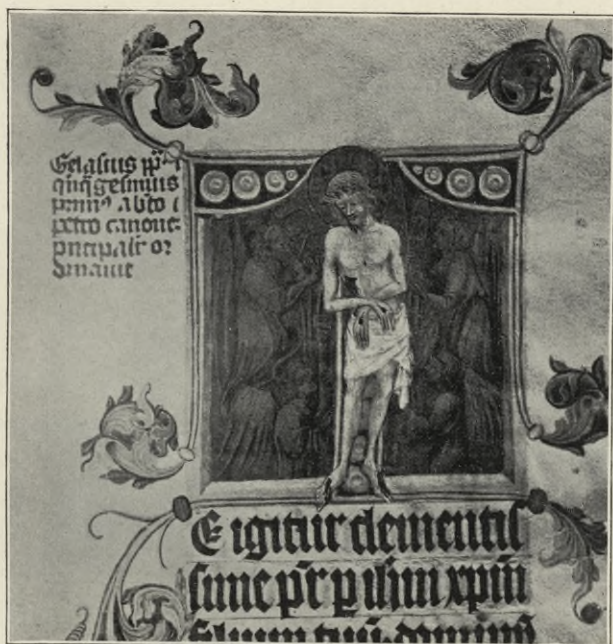 Gelasius pp̄
quīq̄gesimus
primꝰ a bt̄o
petro canonē
prīcipalit̄ or
dinauit
E igitur clementiſ
ſime pr̄ ꝑ ih̄m xp̄m
filium tuū dominū